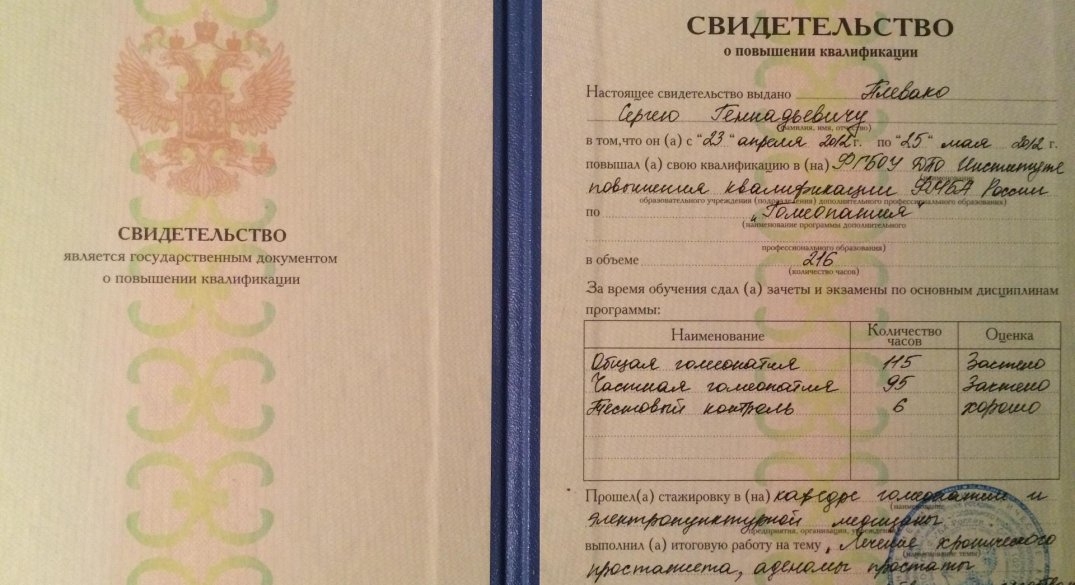 СВИДЕТЕЛЬСТВО
является государственным документом
о повышении квалификации
СВИДЕТЕЛЬСТВО
о повышении квалификации
Настоящее свидетельство выдано Плевако
Сергею Геннадьевичу
(фамилия, имя, отчество)
в том,что он (а) с "23 " апреля 2012 г. по "25 " мая 2012 г
повышал (а) свою квалификацию в (на) ФГБОУ ДПО Институте
повышения квалификации ФМБА России
образовательного учреждения (подразделения) дополнительного профессионального образования)
по „Гомеопатия"
(наименование программы дополнительного
профессионального образования)
в объеме 216
(количество часов)
За время обучения сдал (а) зачеты и экзамены по основным дисциплинам
программы:
Наименование Количество часов Оценка
Общая гомеопатия 115 Зачтено
Частная гомеопатия 95 Зачтено
Тестовый контроль 6 хорошо
Прошел(а) стажировку в (на) кафедре гомеопатии и
(наименование
электропунктурной медицины
предприятия, организации, учреждения)
выполнил (а) итоговую работу на тему „Лечение хронического
(наименование темы)
простатита, аденомы простаты